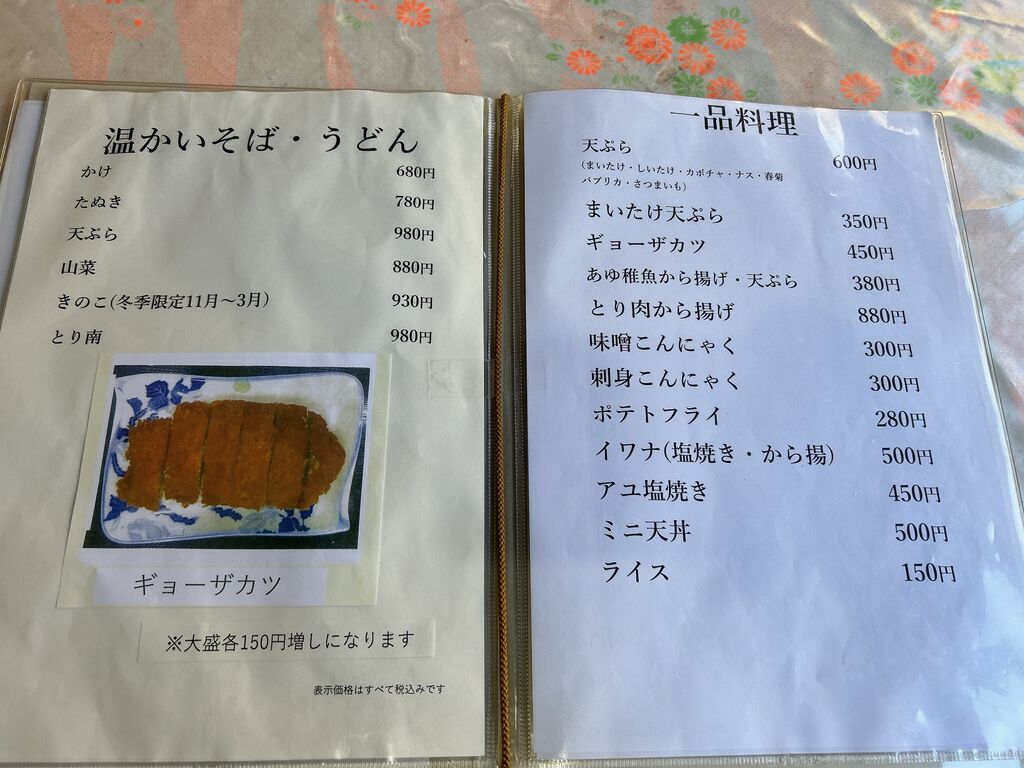 温かいそば・うどん
かけ 680円
たぬき 780円
天ぷら 980円
山菜 880円
きのこ(冬季限定11月〜3月) 930円
とり南 980円
ギョーザカツ
※大盛各150円増しになります
表示価格はすべて税込みです
一品料理
天ぷら 600円
(まいたけ・しいたけ・カボチャ・ナス・春菊
パプリカ・さつまいも)
まいたけ天ぷら 350円
ギョーザカツ 450円
あゆ稚魚から揚げ・天ぷら 380円
とり肉から揚げ 880円
味噌こんにゃく 300円
刺身こんにゃく 300円
ポテトフライ 280円
イワナ(塩焼き・から揚) 500円
アユ塩焼き 450円
ミニ天丼 500円
ライス 150円